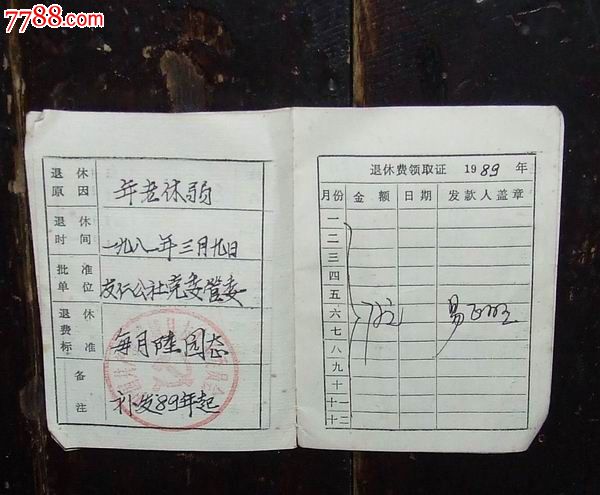 7788.com
退休
原因
年老体弱
退休
时间
一九八一年三月九日
批准
单位
友仁公社党委管委
退休
费
标准
每月陆园
备
注
补发89年起
退休费领取证 1989年
月份 金额 日期 发款人盖章
一
二
三
四
五
六
七
八
九
十
十一
十二